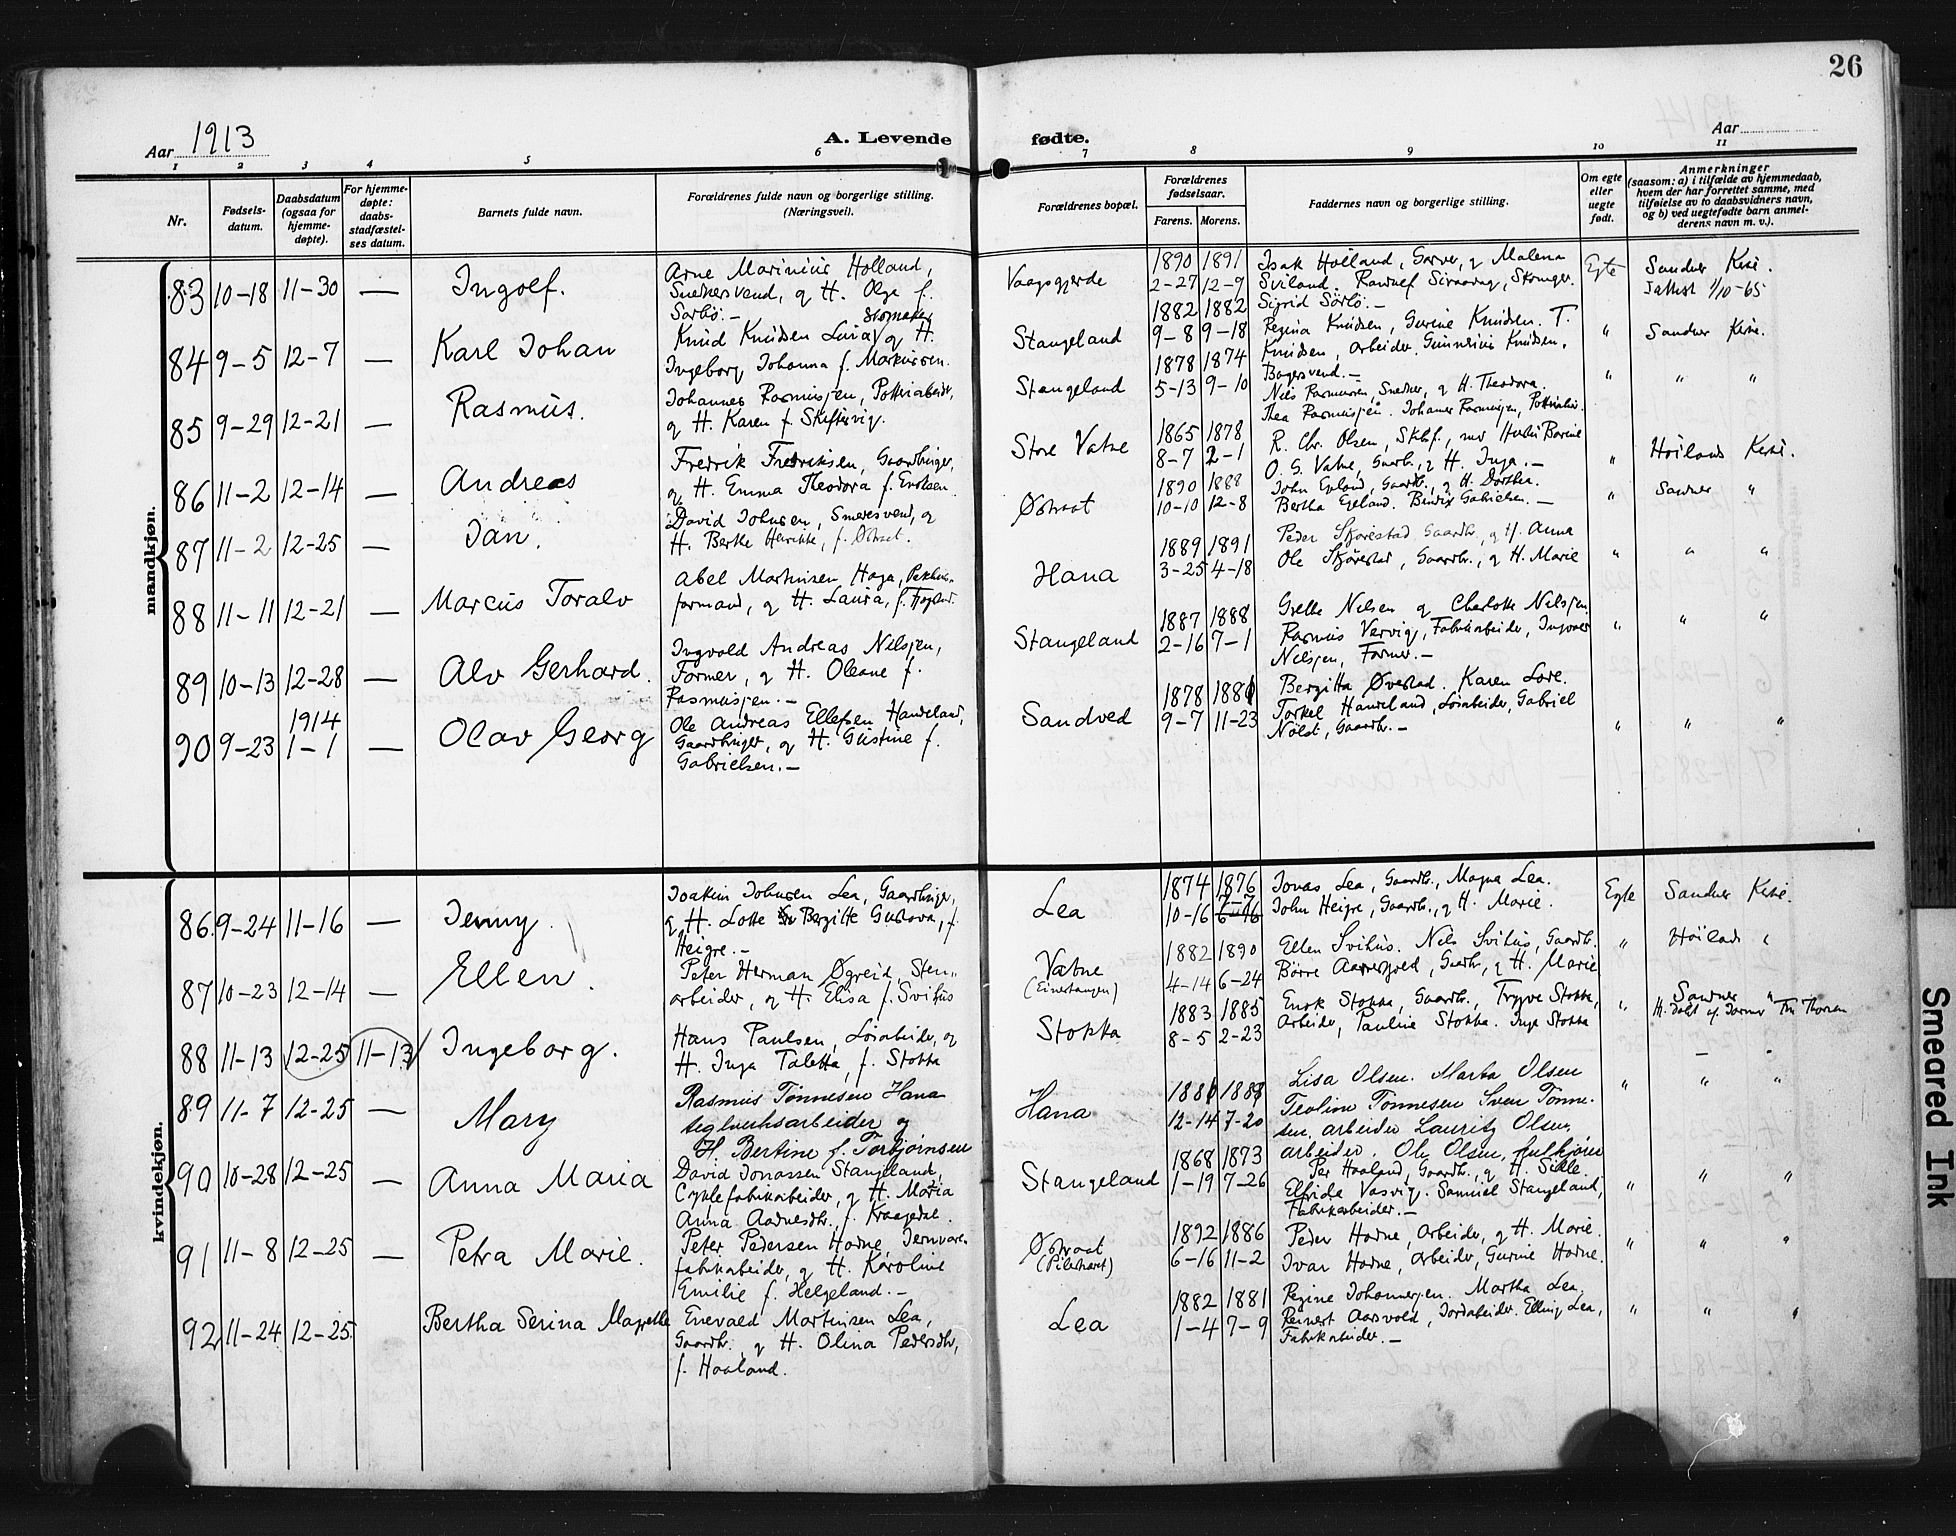 26
Aar 1913
A. Levende fødte.
Aar
1 2 3 4 5 6 7 8 9 10 11
Nr.
Fødsels-
datum.
Daabsdatum
(ogsaa for
hjemme-
døpte).
For hjemme-
døpte:
daabs-
stadfæstel-
ses datum.
Barnets fulde navn.
Forældrenes fulde navn og borgerlige stilling.
(Næringsvei).
Forældrenes bopæl.
Forældrenes
fødselsaar.
Farens. Morens.
Faddernes navn og borgerlige stilling.
Om egte
eller
uegte
født.
Anmerkninger
(saasom: a) i tilfælde av hjemmedaab,
hvem der har forrettet samme, med
tilføielse av to daabsvidners navn,
og b) ved uegtefødte barn anmel-
derens navn m. v.).
mandkjøn.
83 10-18 11-30 — Ingolf.
Arne Marinius Holland,
Snedkersvend, og H. Olga f.
Sørbö.—
Vaagsgjerde
1890 1891
2-27 12-9
Isak Holland, Garver, og Malena
Sviland.
Sigrid Sörbö.—
Egte
Sandnes Kirke.
84 9-5 12-7 — Karl Johan
Skomaker
Knud Knudsen Lura, og H.
Ingeborg Johanna f. Markussen.
Stangeland
1882 1882
9-8 9-18
Regina Knudsen, Gurine Knudsen. T.
Knudsen, Arbeider. Gunnerius Knudsen,
Bagersvend.—
" Sandnes Kirke.
85 9-29 12-21 — Rasmus.
Johannes Rasmusjen, Potteriarbeider,
og H. Karen f. Skiftesvig.
Stangeland
1878 1874
5-13 9-10
Nils Rasmussen, Snedker, og H. Theodora.
Thea Rasmusjen. Johannes Rasmusjen,
" " "
86 11-2 12-14 — Andreas
Fredrik Fredriksen, Gaardbruger,
og H. Emma Theodora f. Eriksen.
Store Vatne
1865 1878
8-7 2-1
R. Chr. Olsen,
O. G. Vatne, Gaardb., og H. Inga.—
" Höilands Kirke.
87 11-2 12-25 — Jan.
David Johnsen, Smedesvend, og
H. Berthe Henrikke, f. Østraat.
Østraat
1890 1888
10-10 12-8
John Egeland, Gaardb., og H. Dorthea.
Bertha Egeland. Bendix Gabrielsen.—
" Sandnes "
88 11-11 12-21 — Marcus Toralv
Abel Martinsen Haga,
formand, og H. Laura,
Hana
1889 1891
3-25 4-18
Peder Skjörestad Gaardbr., og H. Anna
Ole Skjörestad, Gaardbr., og H. Marie
" " "
89 10-13 12-28 — Alv Gerhard.
Ingvald Andreas Nilsjen,
Former, og H. Oleane f.
Rasmusjen.—
Stangeland
1887 1888
2-16 7-1
Grethe Nilsen og Charlotte Nilsjen.
Rasmus Vervig, Fabrikarbeider, Ingvald
Nilsjen, Former.—
" " "
90 9-23 1914 1-1 — Olav Georg
Ole Andreas Ellefsen Handeland,
Gaardbruger, og H. Gustine f.
Gabrielsen.—
Sandved
1878 1881
9-7 11-23
Bergitta Øvestad. Karen Lore.
Torkel Handeland, Løsarbeider, Gabriel
Nöldt, Gaardbr.—
" " "
kvindekjøn.
86 9-24 11-16 — Jenny.
Joakim Johnsen Lea, Gaardbruger,
og H. Lotte Bergitte Gustava, f.
Heigre.—
Lea
1874 1876
7-7
10-16 6-16
Jonas Lea, Gaardb., Magna Lea.
John Heigre, Gaardb., og H. Marie.
Egte Sandnes Kirke.
87 10-23 12-14 — Ellen.
Peter Herman Øgreid, Sten-
arbeider, og H. Elisa f. Svihus
Vatne
1882 1890
4-14 6-24
Ellen Svihus. Nils Svihus, Gaardb.
Börre Aarrestad, Gaardb., og H. Marie
" Höilands "
88 11-13 12-25 11-13 Ingeborg.
Hans Paulsen, Løsarbeider, og
H. Inga Taletta, f. Stokka
Stokka
1883 1885
8-5 2-23
Enok Stokka, Gaardbr., Trygve Stokka,
Arbeider, Pauline Stokka. Inga Stokka
" Sandnes "
89 11-7 12-25 — Mary
Rasmus Tönnesen Hana
teglverksarbeider og
H. Bertine f. Torbjörnsen
Hana
1881 1888
12-14 7-20
Lisa Olsen. Marta Olsen
Teoline Tönnesen Sven Tönne-
sen. arbeider Lauritz Olsen,
arbeider. Ole Olsen,
" " "
90 10-28 12-25 — Anna Maria
David Jonassen Stangeland,
Cyklefabrikarbeider, og H. Maria
Anna Aadnesdtr. f. Kragedal.
Stangeland
1868 1873
1-19 7-26
Per Haaland, Gaardb., og H. Sikke.
Elfrida Vasvig. Samuel Stangeland,
Fabrikarbeider.—
" " "
91 11-8 12-25 — Petra Marie.
Peter Pedersen Hodne, Jernvare-
fabrikarbeider, og H. Karoline
Emilie f. Helgeland.—
Østraat
1892 1886
6-16 11-2
Peder Hodne, Arbeider, og H. Marie.
Ivar Hodne, Arbeider, Gurine Hodne.
" " "
92 11-24 12-25 Bertha Serina Magrethe
Enevald Martinsen Lea,
Gaardbr., og H. Olina Pedersdtr,
f. Haaland.
Lea
1882 1881
1-4 7-9
Regine Johannesjen. Martha Lea.
Reinert Aarsvold, Jordarbeider. Elling Lea,
Fabrikarbeider.—
" " "
Smeared Ink